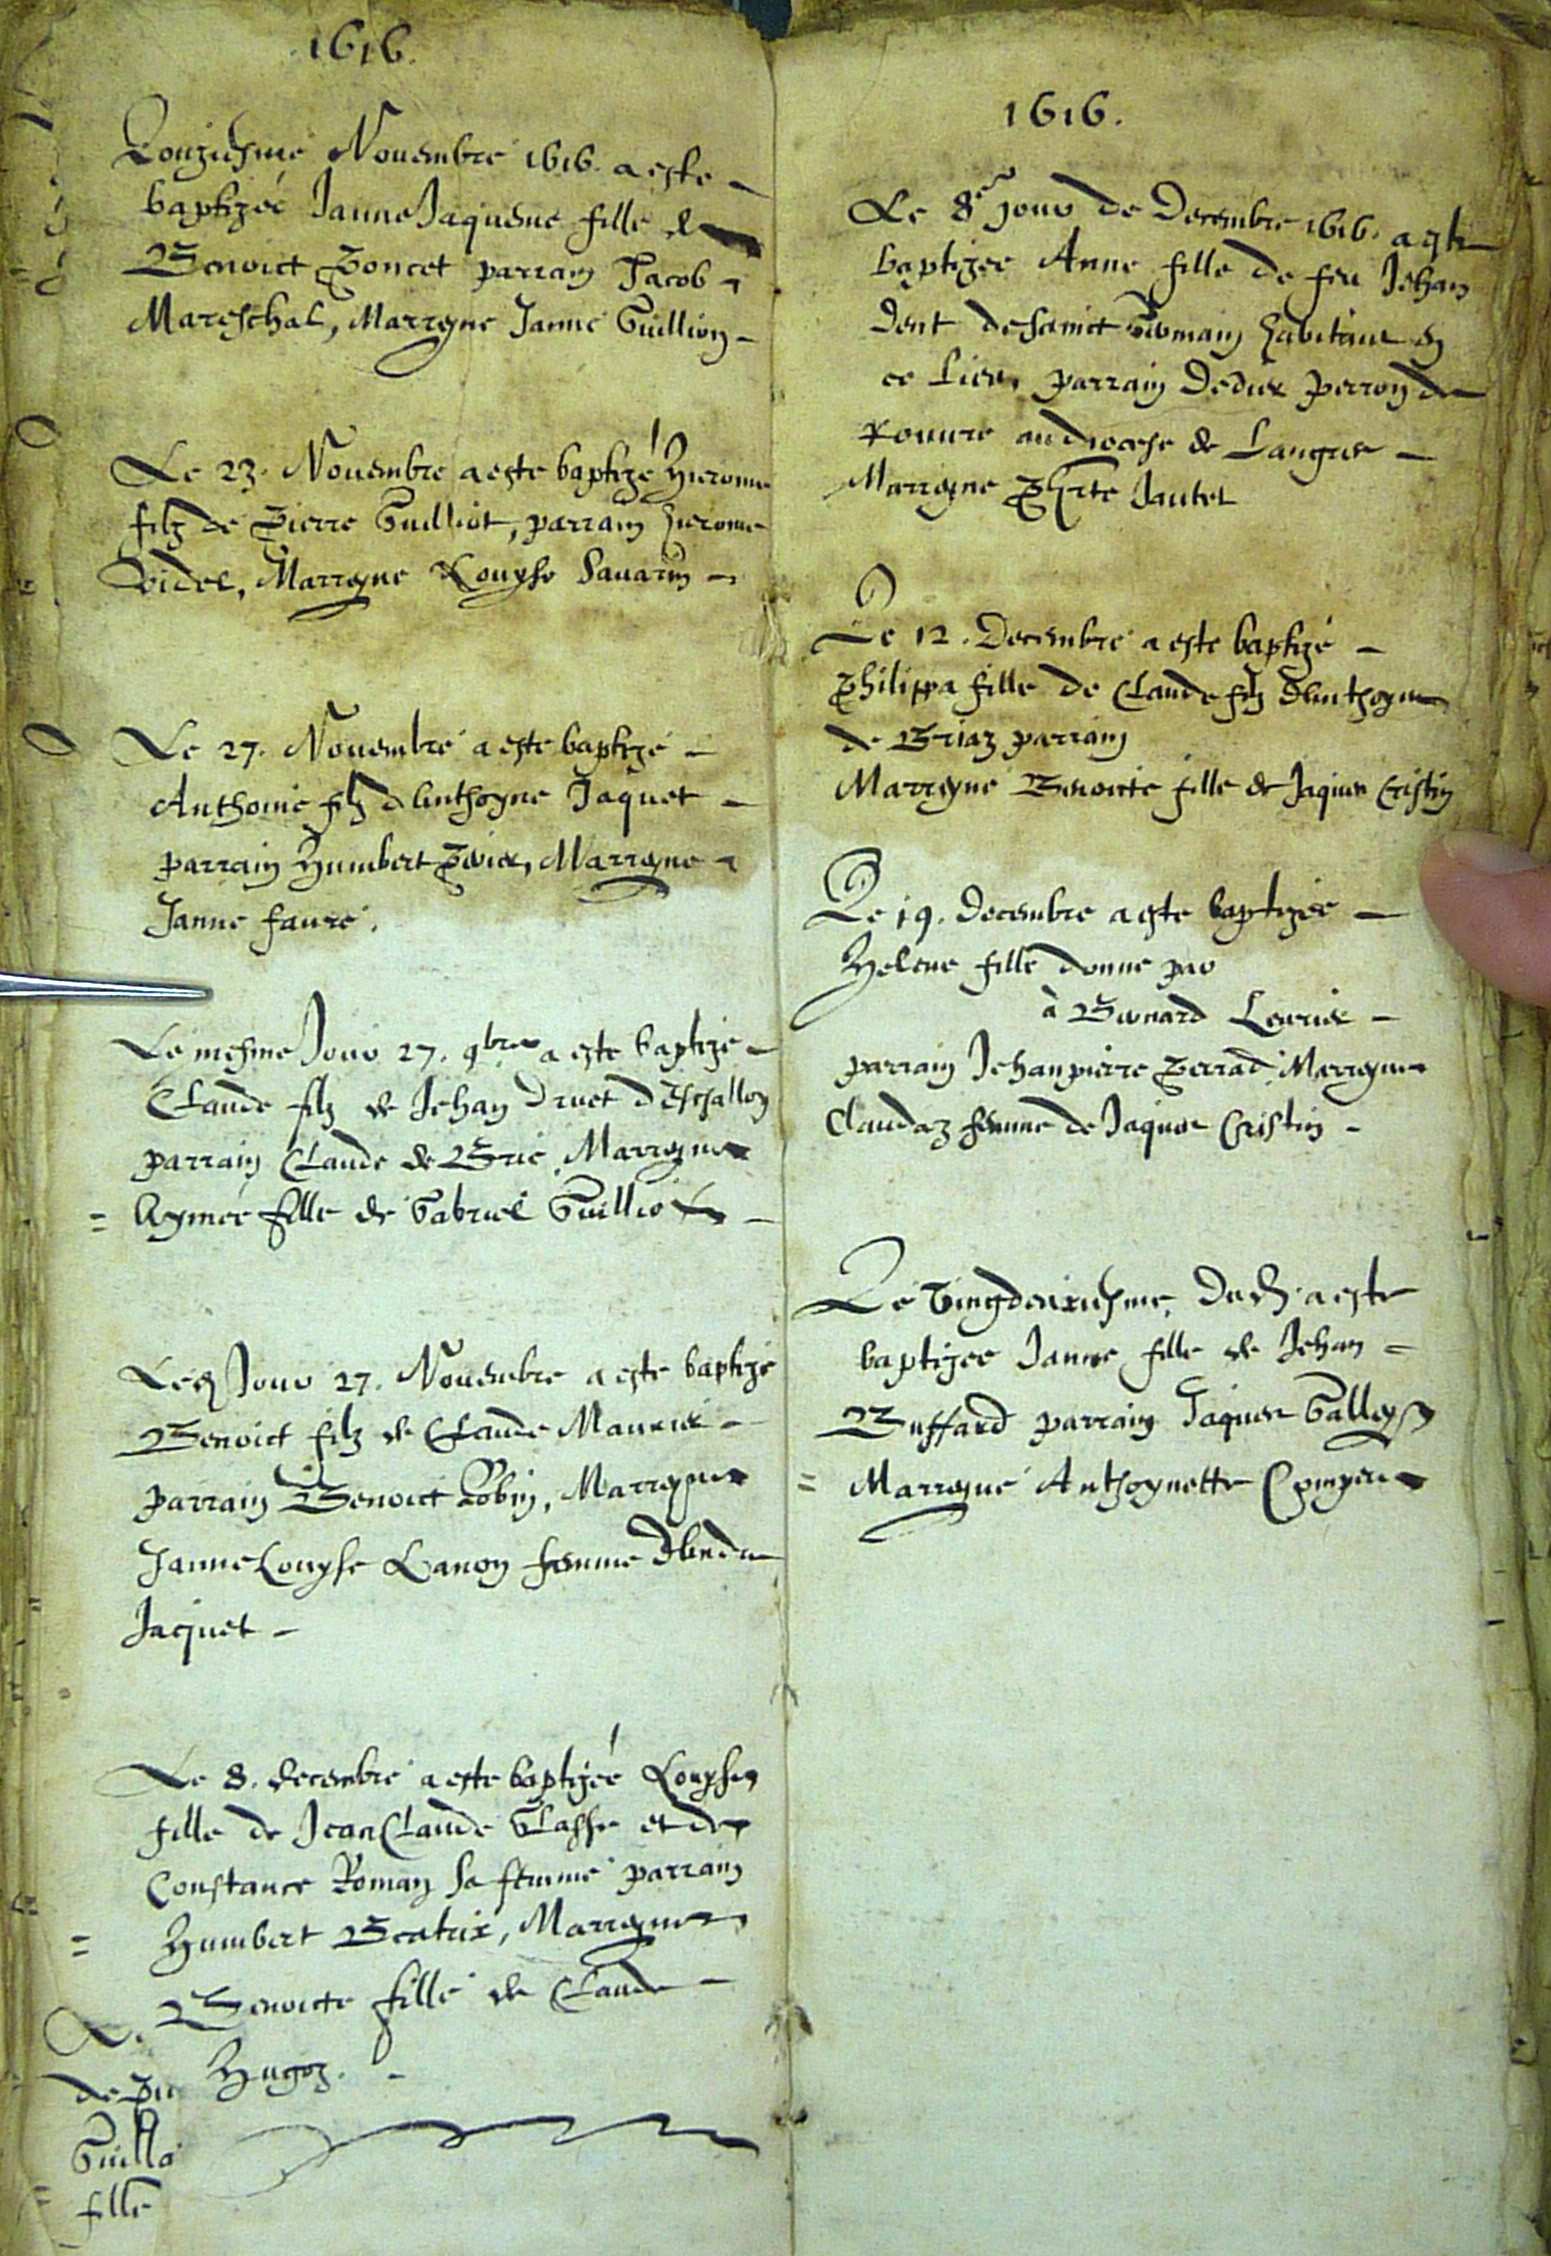 1616.
Onziesme Novembre 1616. a este
baptizée Janne Jaqueme fille de
Benoict Poncet parrain Jacob
Mareschal, Marreyne Janne Guillion
Le 23. Novembre a este baptizé Hierome
filz de Pierre Guilliot, parrain hierome
Videl, Marreyne Louyse Savarin
Le 27. Novembre a este baptizé
Anthoine filz d'Anthoyne Jaquet
parrain Humbert Marreyne
Janne faure.
Le mesme Jour 27. 9bre a este baptizé
Claude filz de Jehan Druet d'Eschallon
parrain Claude de Brie, Marreyne
Aymée fille de Gabriel Guillio
Jour 27. Novembre a este baptizé
Benoict filz de Claude Maurier
parrain Benoict Robin, Marreyne
Janne Louyse Lanon femme d'Andre
Jacquet
Le 8. decembre a este baptizée Louyse
fille de Jean Claude Classe et de
Constance Roman sa femme parrain
Humbert Beatrix, Marreyne
Benoicte fille de Claude
Hugoz.
de
fille
1616.
Le 8e jour de Decembre 1616. a este
baptizee Anne fille de feu Jehan
Dent de sainct Germain habitant en
ce lieu, parrain Dedier perron de
rouvre au diocese de Langres
Marreyne Jantet
Le 12. Decembre a este baptizé
Philippa fille de Claude filz d'Anthoyne
de Briaz parrain
Marreyne Benoicte fille de Jaques Cristin
Le 19. Decembre a este baptizée
Helene fille donne par
à Bernard Levrier
parrain Jehan pierre Perrad, Marreyne
Claudaz femme de Jaques Cristin
Le Vingdeuxiesme, Dud. a este
baptizee Janne fille de Jehan
Buffard parrain Jaques Galleys
Marreyne Anthoynette Compere